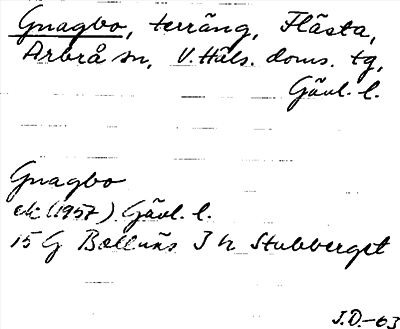 Gnagbo, terräng, Flästa,
Arbrå sn, V. Häls. doms. tg,
Gävl. l.
Gnagbo
ek (1957) Gävl. l.
15 G Bollnäs 3 h Stubberget
J.D.-63